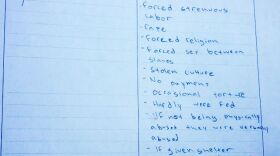 - forced strenuous
labor
- rape
- forced religion
- forced sex between
slaves
- stolen culture
- No payment
- occasional torture
- Hardly were fed
- if not being physically
abused they were verbally
abused
- if given shelter